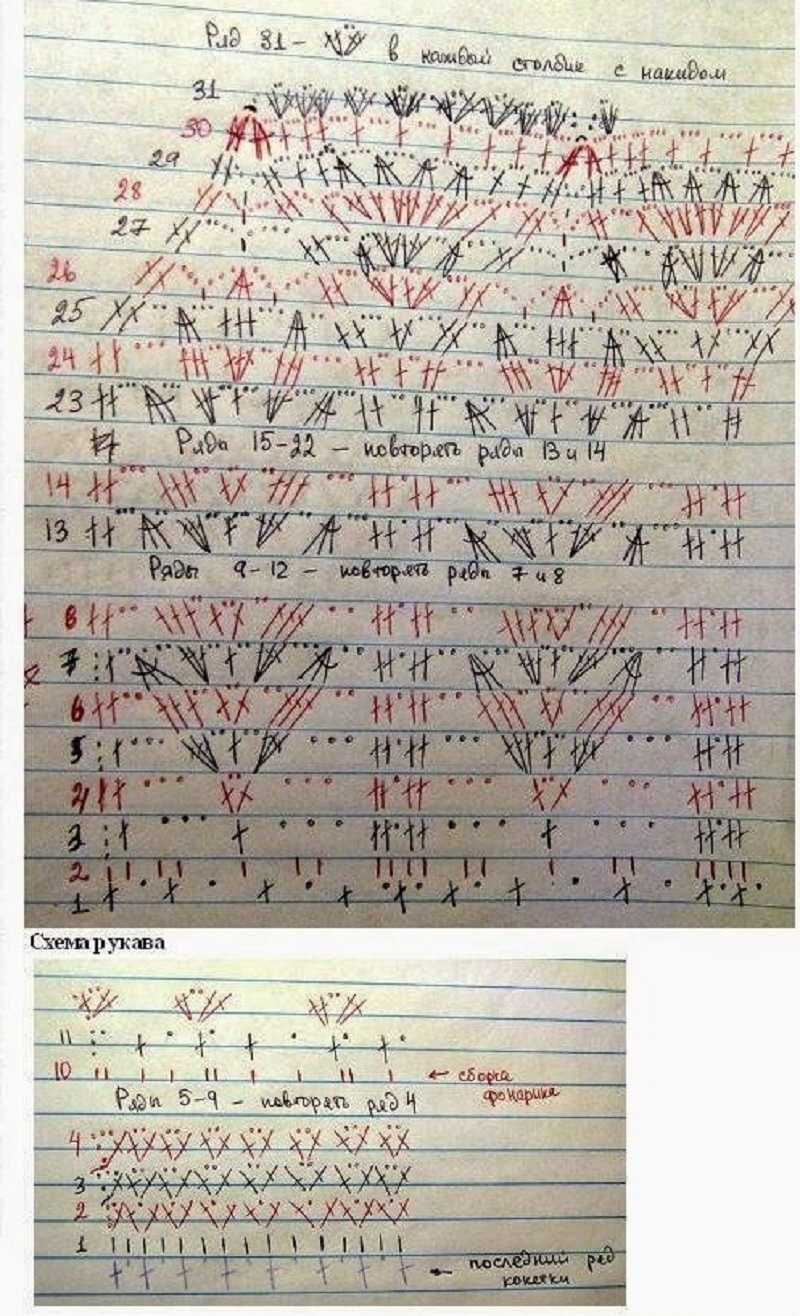 Ряд 31 - в каждый столбик с накидом
31
30
29
28
27
26
25
24
23
Ряды 15-22 - повторять ряды 13 и 14
14
13
Ряды 9-12 - повторять ряды 7 и 8
8
7
6
5
4
3
2
1
Схема рукава
11
10 ← сборка фонарика
Ряды 5-9 - повторять ряд 4
4
3
2
1
← последний ряд кокетки